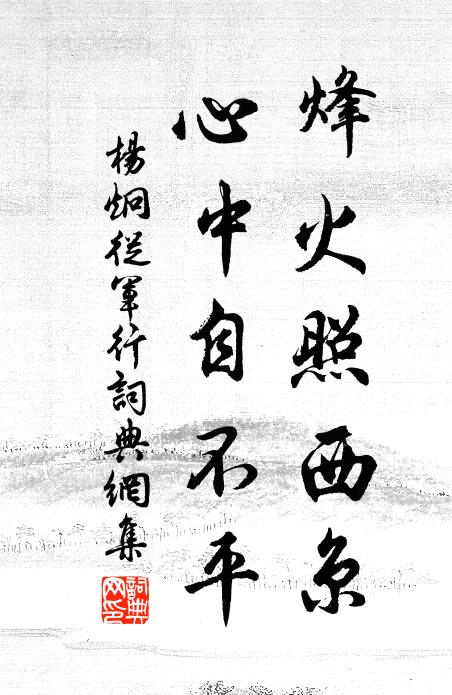 烽火照西京
心中自不平
楊炯從軍行詞典網集
詞典网印